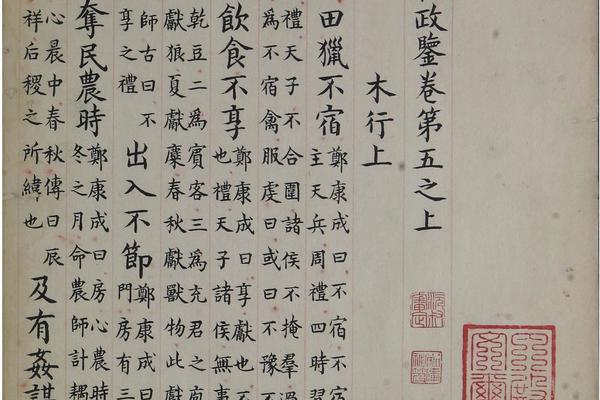 政鑒卷第五之上
木行上
田獵不宿鄭康成曰不宿不宿
主天兵周禮四時習
禮天子不合圍諸侯不掩羣過
為不宿禽服虔曰或曰不豫不
飲食不享鄭康成曰享獻也不
也禮天子諸侯無事
乾豆二為賓客三為充君之庖
獻狼夏獻麋春秋獻獸物此獻
師古曰不
享之禮
出入不節鄭康成曰
門房有三
奪民農時鄭康成曰房心農時
冬之月命農師計耦
心晨中春秋傳曰辰
祥后稷之所緯也
及有姦謀